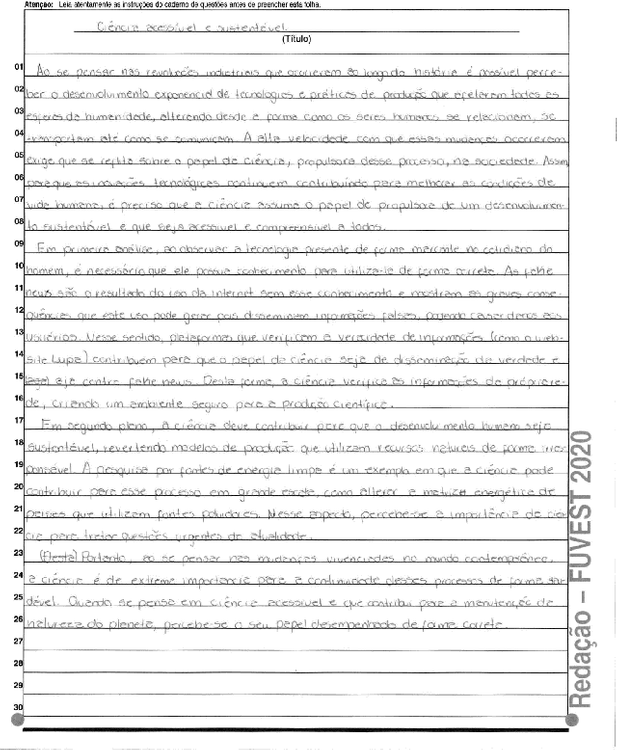 Atenção: Leia atentamente as instruções do caderno de questões antes de preencher esta folha.
Ciência acessível e sustentável
(Título)
01 Ao se pensar nas revoluções industriais que ocorreram ao longo da história é possível perce-
02 ber o desenvolvimento exponencial de tecnologias e práticas de produção que afetaram todas as
03 esferas da humanidade, alterando desde a forma como os seres humanos se relacionam, se
04 transportam até como se comunicam. A alta velocidade com que essas mudanças ocorreram
05 exige que se reflita sobre o papel da ciência, propulsora desse processo, na sociedade. Assim,
06 para que as inovações tecnológicas continuem contribuindo para melhorar as condições de
07 vida humana, é preciso que a ciência assuma o papel de propulsora de um desenvolvimen-
08 to sustentável e que seja acessível e compreensível a todos.
09 Em primeira análise, ao observar a tecnologia presente de forma marcante no cotidiano do
10 homem, é necessário que ele possua conhecimento para utilizá-la de forma correta. As fake
11 news são o resultado do uso da internet sem esse conhecimento e mostram as graves conse-
12 quências que este uso pode gerar pois disseminam informações falsas, podendo causar danos aos
13 usuários. Nesse sentido, plataformas que verificam a veracidade de informações (como o web-
14 site Lupa) contribuem para que o papel da ciência seja de disseminação da verdade e
15 aja contra fake news. Desta forma, a ciência verifica as informações de
16 de, criando um ambiente seguro para a produção científica.
17 Em segundo plano, a ciência deve contribuir para que o desenvolvimento humano seja
18 sustentável, revertendo modelos de produção que utilizam recursos naturais de forma irres-
19 ponsável. A pesquisa por fontes de energia limpa é um exemplo em que a ciência pode
20 contribuir para esse processo em grande escala, como alterar a matriz energética de
21 países que utilizam fontes poluidoras. Nesse aspecto, percebe-se a importância da ciên-
22 cia para tratar questões urgentes da atualidade.
23 Portanto, ao se pensar nas mudanças vivenciadas no mundo contemporâneo,
24 a ciência é de extrema importância para a continuidade desses processos de forma sau-
25 dável. Quando se pensa em ciência acessível e que contribui para a manutenção da
26 natureza do planeta, percebe-se o seu papel desempenhado de forma correta.
27
28
29
30
Redação – FUVEST 2020